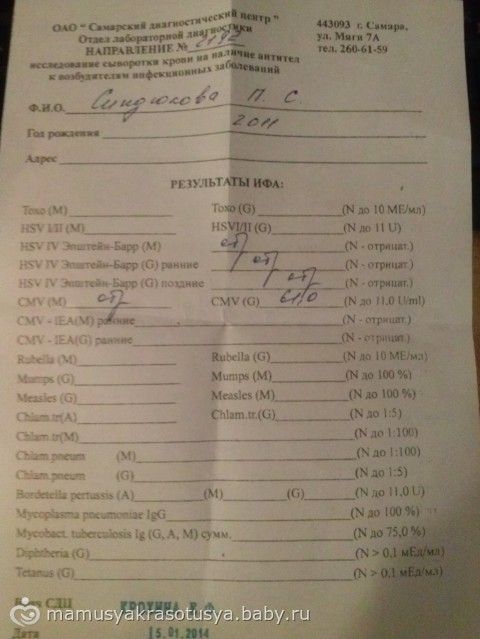 ОАО " Самарский диагностический центр "
Отдел лабораторной диагностики
НАПРАВЛЕНИЕ №
исследование сыворотки крови на наличие антител
к возбудителям инфекционных заболеваний
443093 г. Самара,
ул. Мяги 7А
тел. 260-61-59
Ф.И.О. Синдюкова П. С.
Год рождения 2011
Адрес
РЕЗУЛЬТАТЫ ИФА:
Токо (M) Токо (G) (N до 10 МЕ/мл)
HSV I/II (M) HSVI/II (G) (N до 11 U)
HSV IV Эпштейн-Барр (M) от (N - отрицат.)
HSV IV Эпштейн-Барр (G) ранние от (N - отрицат.)
HSV IV Эпштейн-Барр (G) поздние от (N - отрицат.)
CMV (M) от CMV (G) 61,0 (N до 11,0 U/ml)
CMV - IEA(M) ранние (N - отрицат.)
CMV - IEA(G) ранние (N - отрицат.)
Rubella (M) Rubella (G) (N до 10 МЕ/мл)
Mumps (G) Mumps (M) (N до 100 %)
Measles (G) Measles (M) (N до 100 %)
Chlam.tr(A) Chlam.tr.(G) (N до 1:5)
Chlam.tr(M) (N до 1:100)
Chlam.pneum (M) (N до 1:100)
Chlam.pneum (G) (N до 1:5)
Bordetella pertussis (A) (M) (G) (N до 11,0 U)
Mycoplasma pneumoniae IgG (N до 100 %)
Mycobact. tuberculosis Ig (G, A, M) сумм. (N до 75,0 %)
Diphtheria (G) (N > 0,1 мЕд/мл)
Tetanus (G) (N > 0,1 мЕд/мл)
СДЦ
Дата 15.01.2014
mamusyakrasotusya.baby.ru